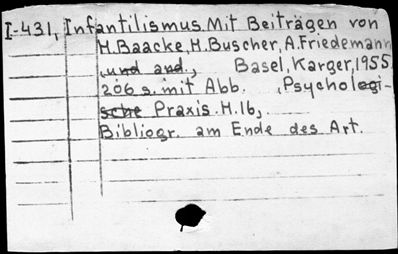 I-431, Infantilismus. Mit Beiträgen von
H. Baacke, H. Buscher, A. Friedemann
, und and., Basel, Karger, 1955
206 s. mit Abb. , Psychologi-
sche Praxis. H. 16,.
Bibliogr. am Ende des Art.